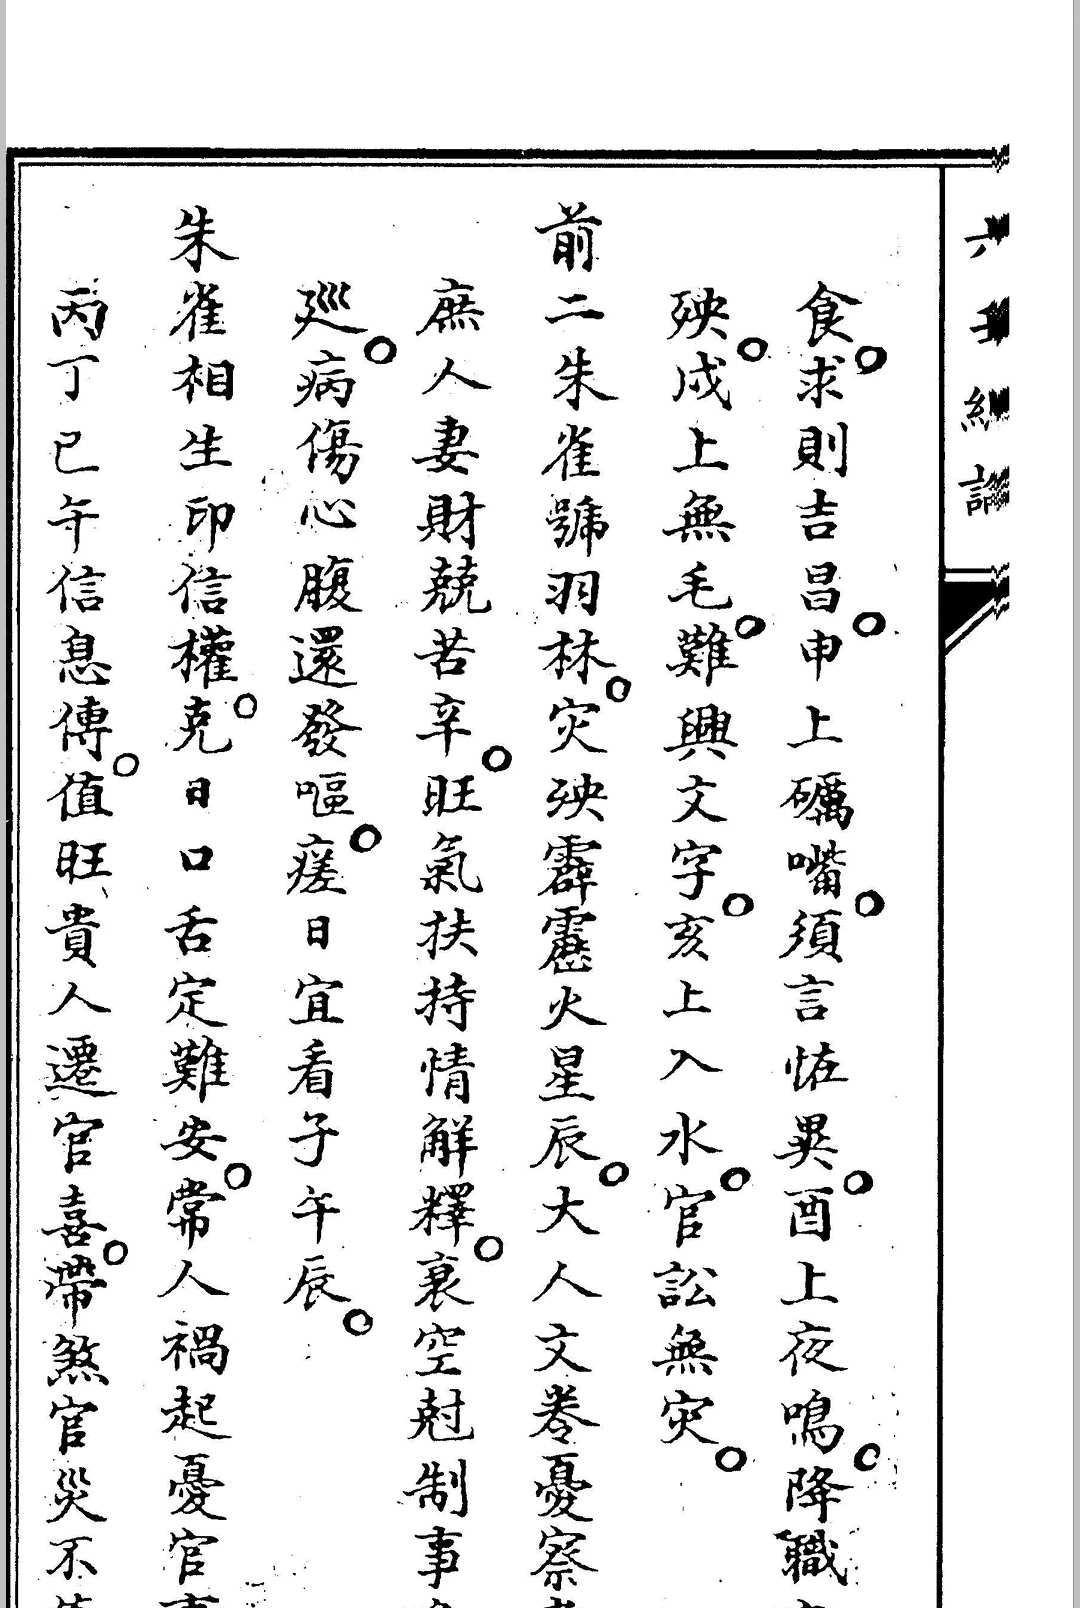 六壬經
食○求則吉昌○申上礪嘴○須言恠異○酉上夜鳴○降職
殃○戌上無毛○難興文字○亥上入水○官訟無灾○
前二朱雀號羽林○灾殃霹靂火星辰○大人文卷憂察
庶人妻財兢苦辛○旺氣扶持情解釋○衰空尅制事
𢌞○病傷心腹還發嘔○瘥日宜看子午辰○
朱雀相生印信權○克日口舌定難安○常人禍起憂官事
丙丁巳午信息傳○值旺貴人遷官喜○帶煞官災不